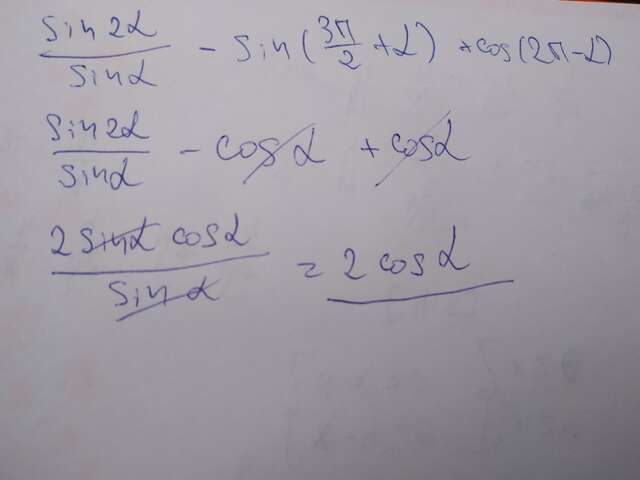 sin2α/sinα - sin(3π/2 + α) + cos(2π - α)
sin2α/sinα - cosα + cosα
2 sinα cosα/sinα = 2 cosα